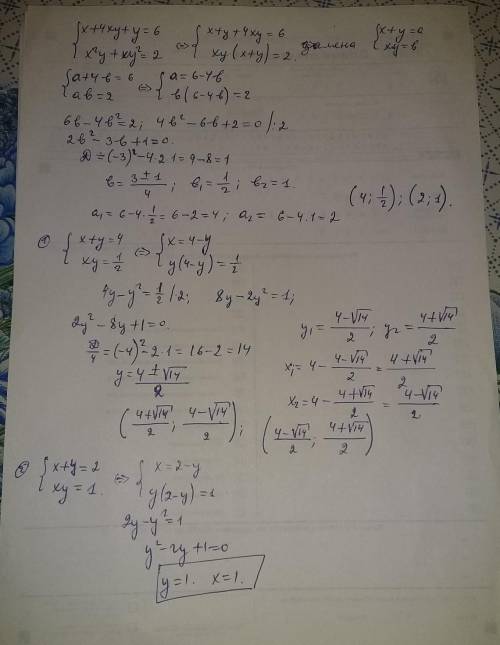 {x+4xy+y=6 ⇔ {x+y+4xy=6 замена {x+y=a
{x²y+xy²=2 {xy(x+y)=2. {xy=b
{a+4b=6 ⇔ {a=6-4b
{ab=2 {b(6-4b)=2
6b-4b²=2; 4b²-6b+2=0 /:2
2b²-3b+1=0.
D=(-3)²-4·2·1=9-8=1
b=(3±1)/4; b₁=1/2; b₂=1.
a₁=6-4·1/2=6-2=4; a₂=6-4·1=2
(4; 1/2); (2; 1).
① {x+y=4 ⇔ {x=4-y
{xy=1/2 {y(4-y)=1/2
4y-y²=1/2 /2; 8y-2y²=1;
2y²-8y+1=0.
D/4=(-4)²-2·1=16-2=14
y=(4±√14)/2
((4+√14)/2; (4-√14)/2);
y₁=(4-√14)/2; y₂=(4+√14)/2
x₁=4-(4-√14)/2=(4+√14)/2
x₂=4-(4+√14)/2=(4-√14)/2
((4-√14)/2; (4+√14)/2)
② {x+y=2 ⇔ {x=2-y
{xy=1. {y(2-y)=1
2y-y²=1
y²-2y+1=0
y=1. x=1.